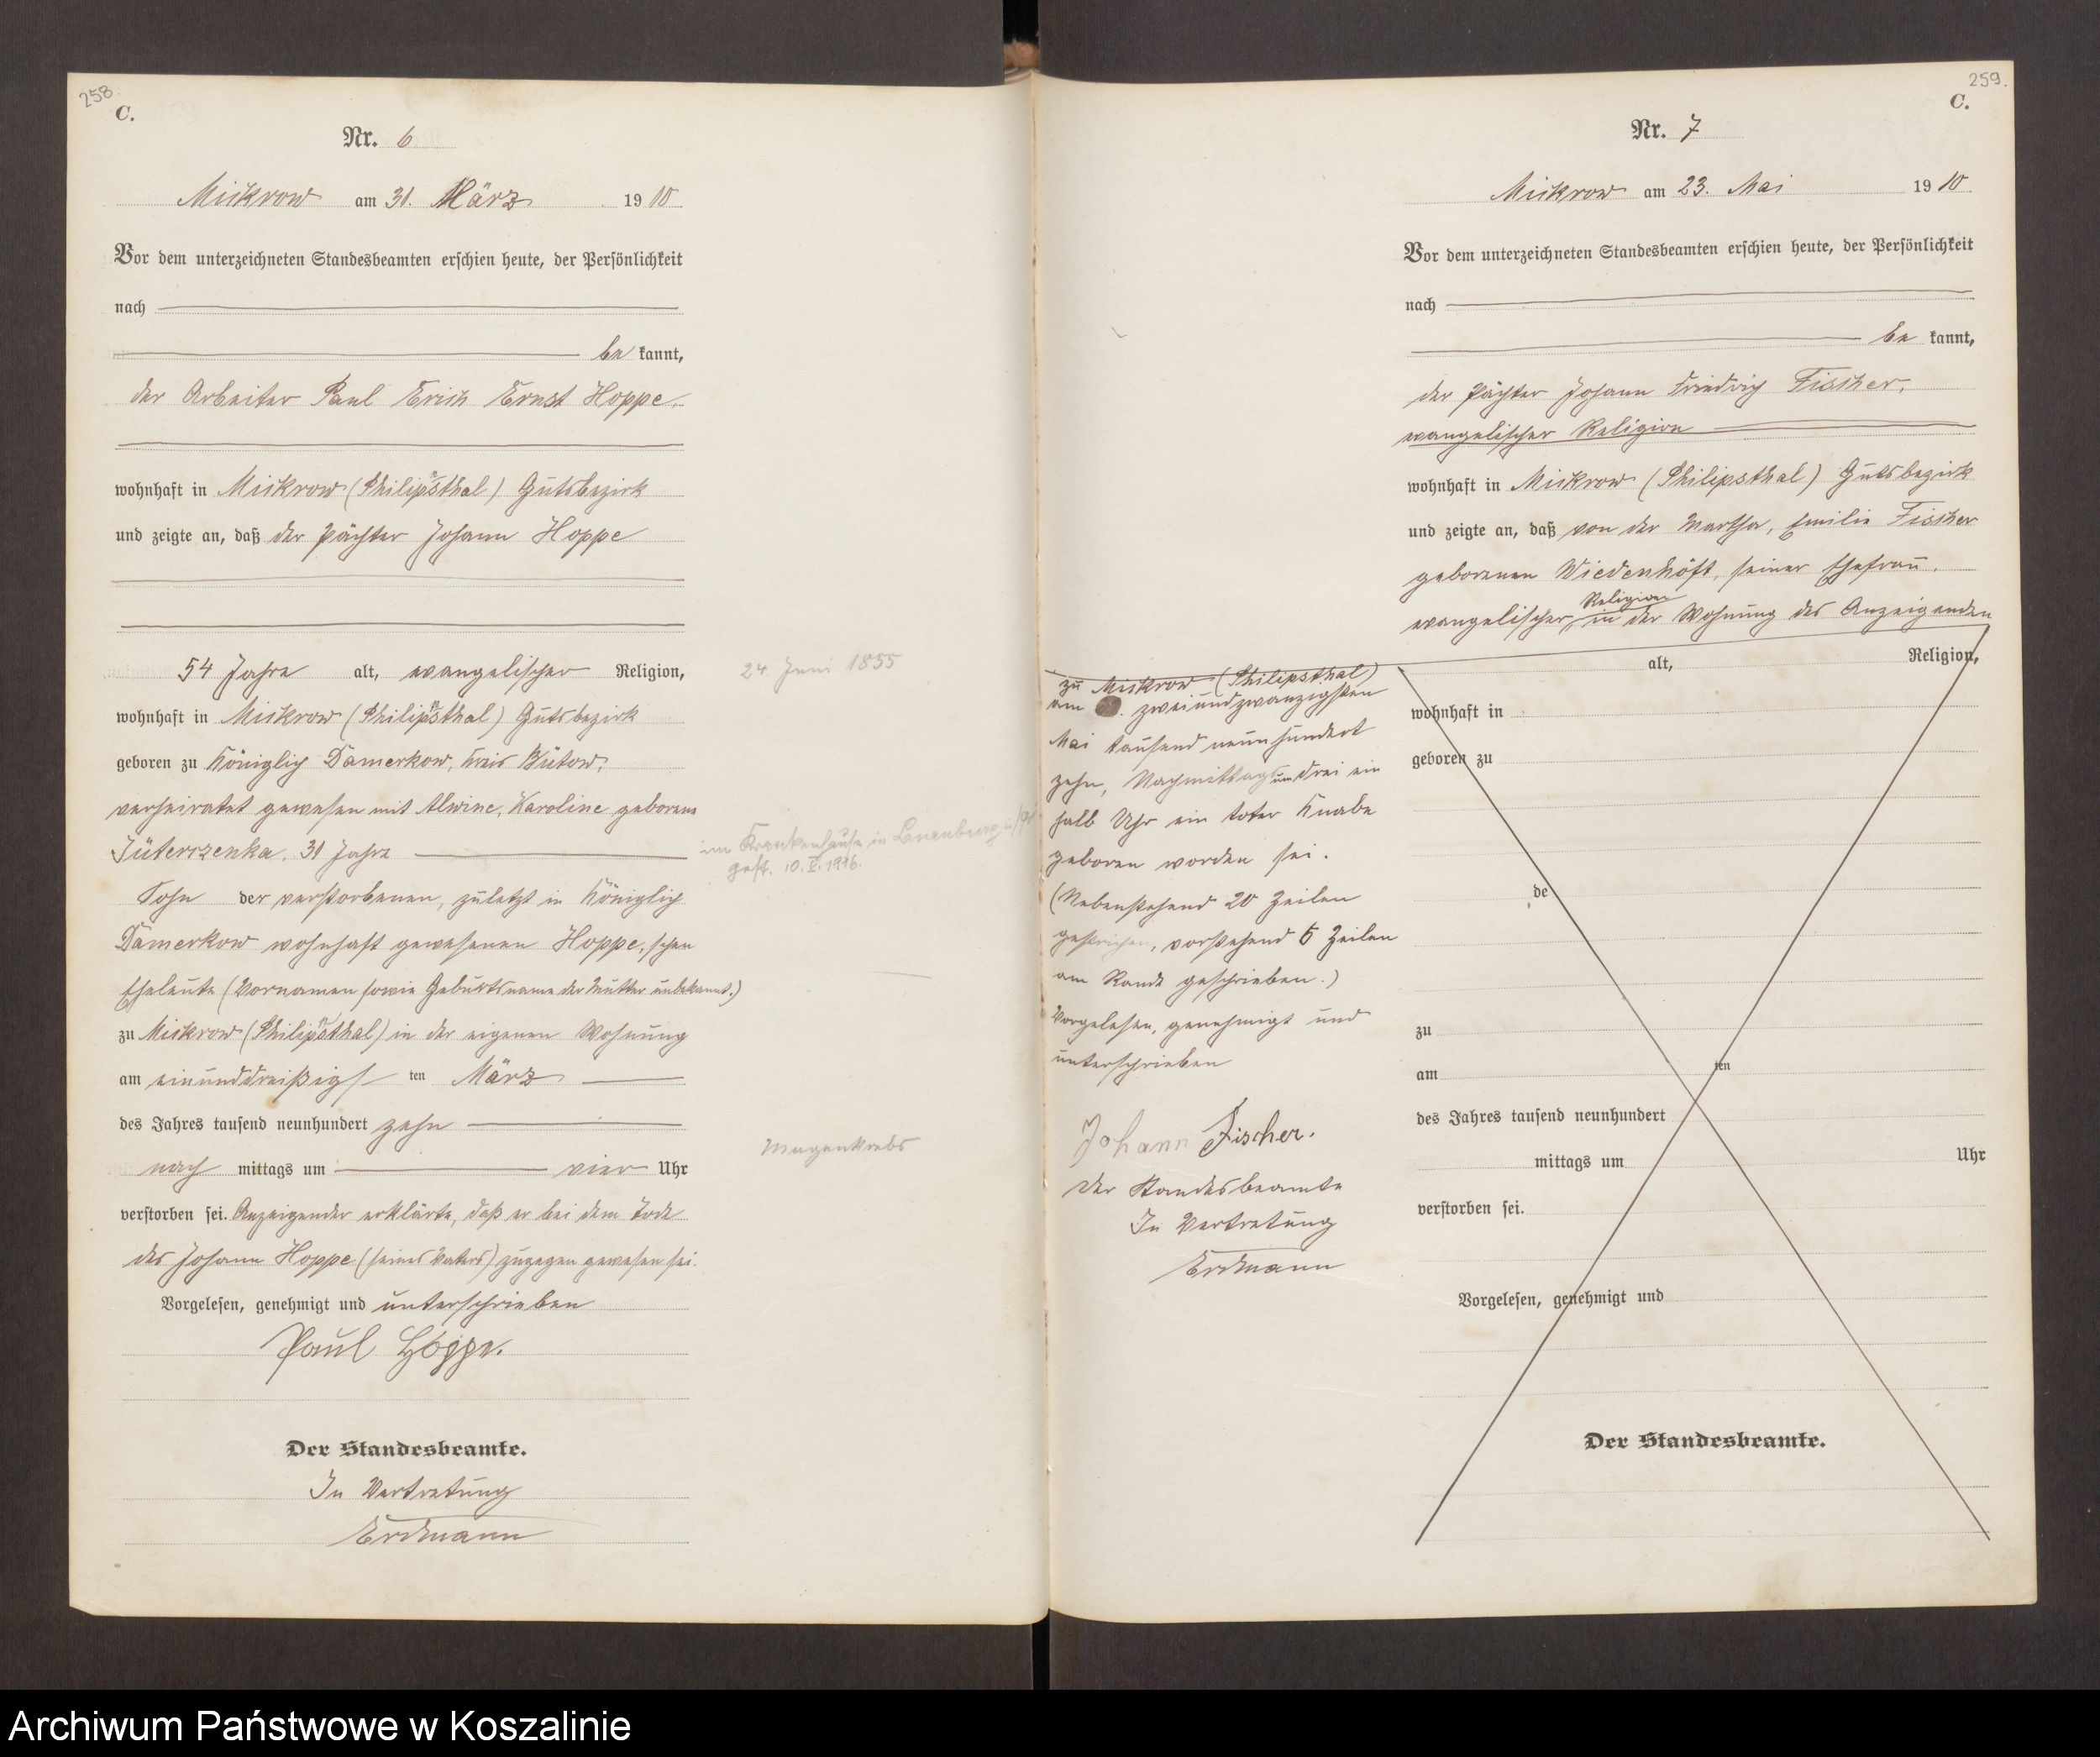 258.
C.
Nr. 6
Mickrow am 31. März 1910
Vor dem unterzeichneten Standesbeamten erschien heute, der Persönlichkeit
nach
be kannt,
der Arbeiter Paul Erich Ernst Hoppe,
wohnhaft in Mickrow (Philippsthal) Gutsbezirk
und zeigte an, daß der Pächter Johann Hoppe
54 Jahre alt, evangelischer Religion,
24. Juni 1855
wohnhaft in Mickrow (Philippsthal) Gutsbezirk
geboren zu Königlich Damerkow, Kreis Bütow,
verheiratet gewesen mit Alwine, Karoline geborene
Jüterczenka, 31 Jahre
im Krankenhause in Lauenburg
gest. 10. V. 1916.
Sohn der verstorbenen, zuletzt in Königlich
Damerkow wohnhaft gewesenen Hoppe'schen
Eheleute (Vornamen sowie Geburtsname der Mutter unbekannt.)
zu Mickrow (Philippsthal) in der eigenen Wohnung
am einunddreißigsten März
des Jahres tausend neunhundert zehn
nach mittags um vier Uhr
Magenkrebs
verstorben sei. Anzeigender erklärte, daß er bei dem Tode
des Johann Hoppe (seines Vaters) zugegen gewesen sei.
Vorgelesen, genehmigt und unterschrieben
Paul Hoppe.
Der Standesbeamte.
In Vertretung
Erdmann
259.
C.
Nr. 7
Mickrow am 23. Mai 1910
Vor dem unterzeichneten Standesbeamten erschien heute, der Persönlichkeit
nach
be kannt,
der Pächter Johann Friedrich Fischer,
evangelischer Religion
wohnhaft in Mickrow (Philipsthal) Gutsbezirk
und zeigte an, daß von der Martha, Emilie Fischer
geborenen Wiedenhöft, seiner Ehefrau,
evangelischer Religion in der Wohnung des Anzeigenden
zu Mickrow (Philipsthal)
am zweiundzwanzigsten
Mai tausend neunhundert
zehn, Nachmittags um drei ein
halb Uhr ein toter Knabe
geboren worden sei.
(Nebenstehend 20 Zeilen
gestrichen, vorstehend 6 Zeilen
am Rande geschrieben.)
Vorgelesen, genehmigt und
unterschrieben
Johann Fischer.
Der Standesbeamte
In Vertretung
Erdmann
alt, Religion,
wohnhaft in
geboren zu
de
zu
am ten
des Jahres tausend neunhundert
mittags um Uhr
verstorben sei.
Vorgelesen, genehmigt und
Der Standesbeamte.
Archiwum Państwowe w Koszalinie